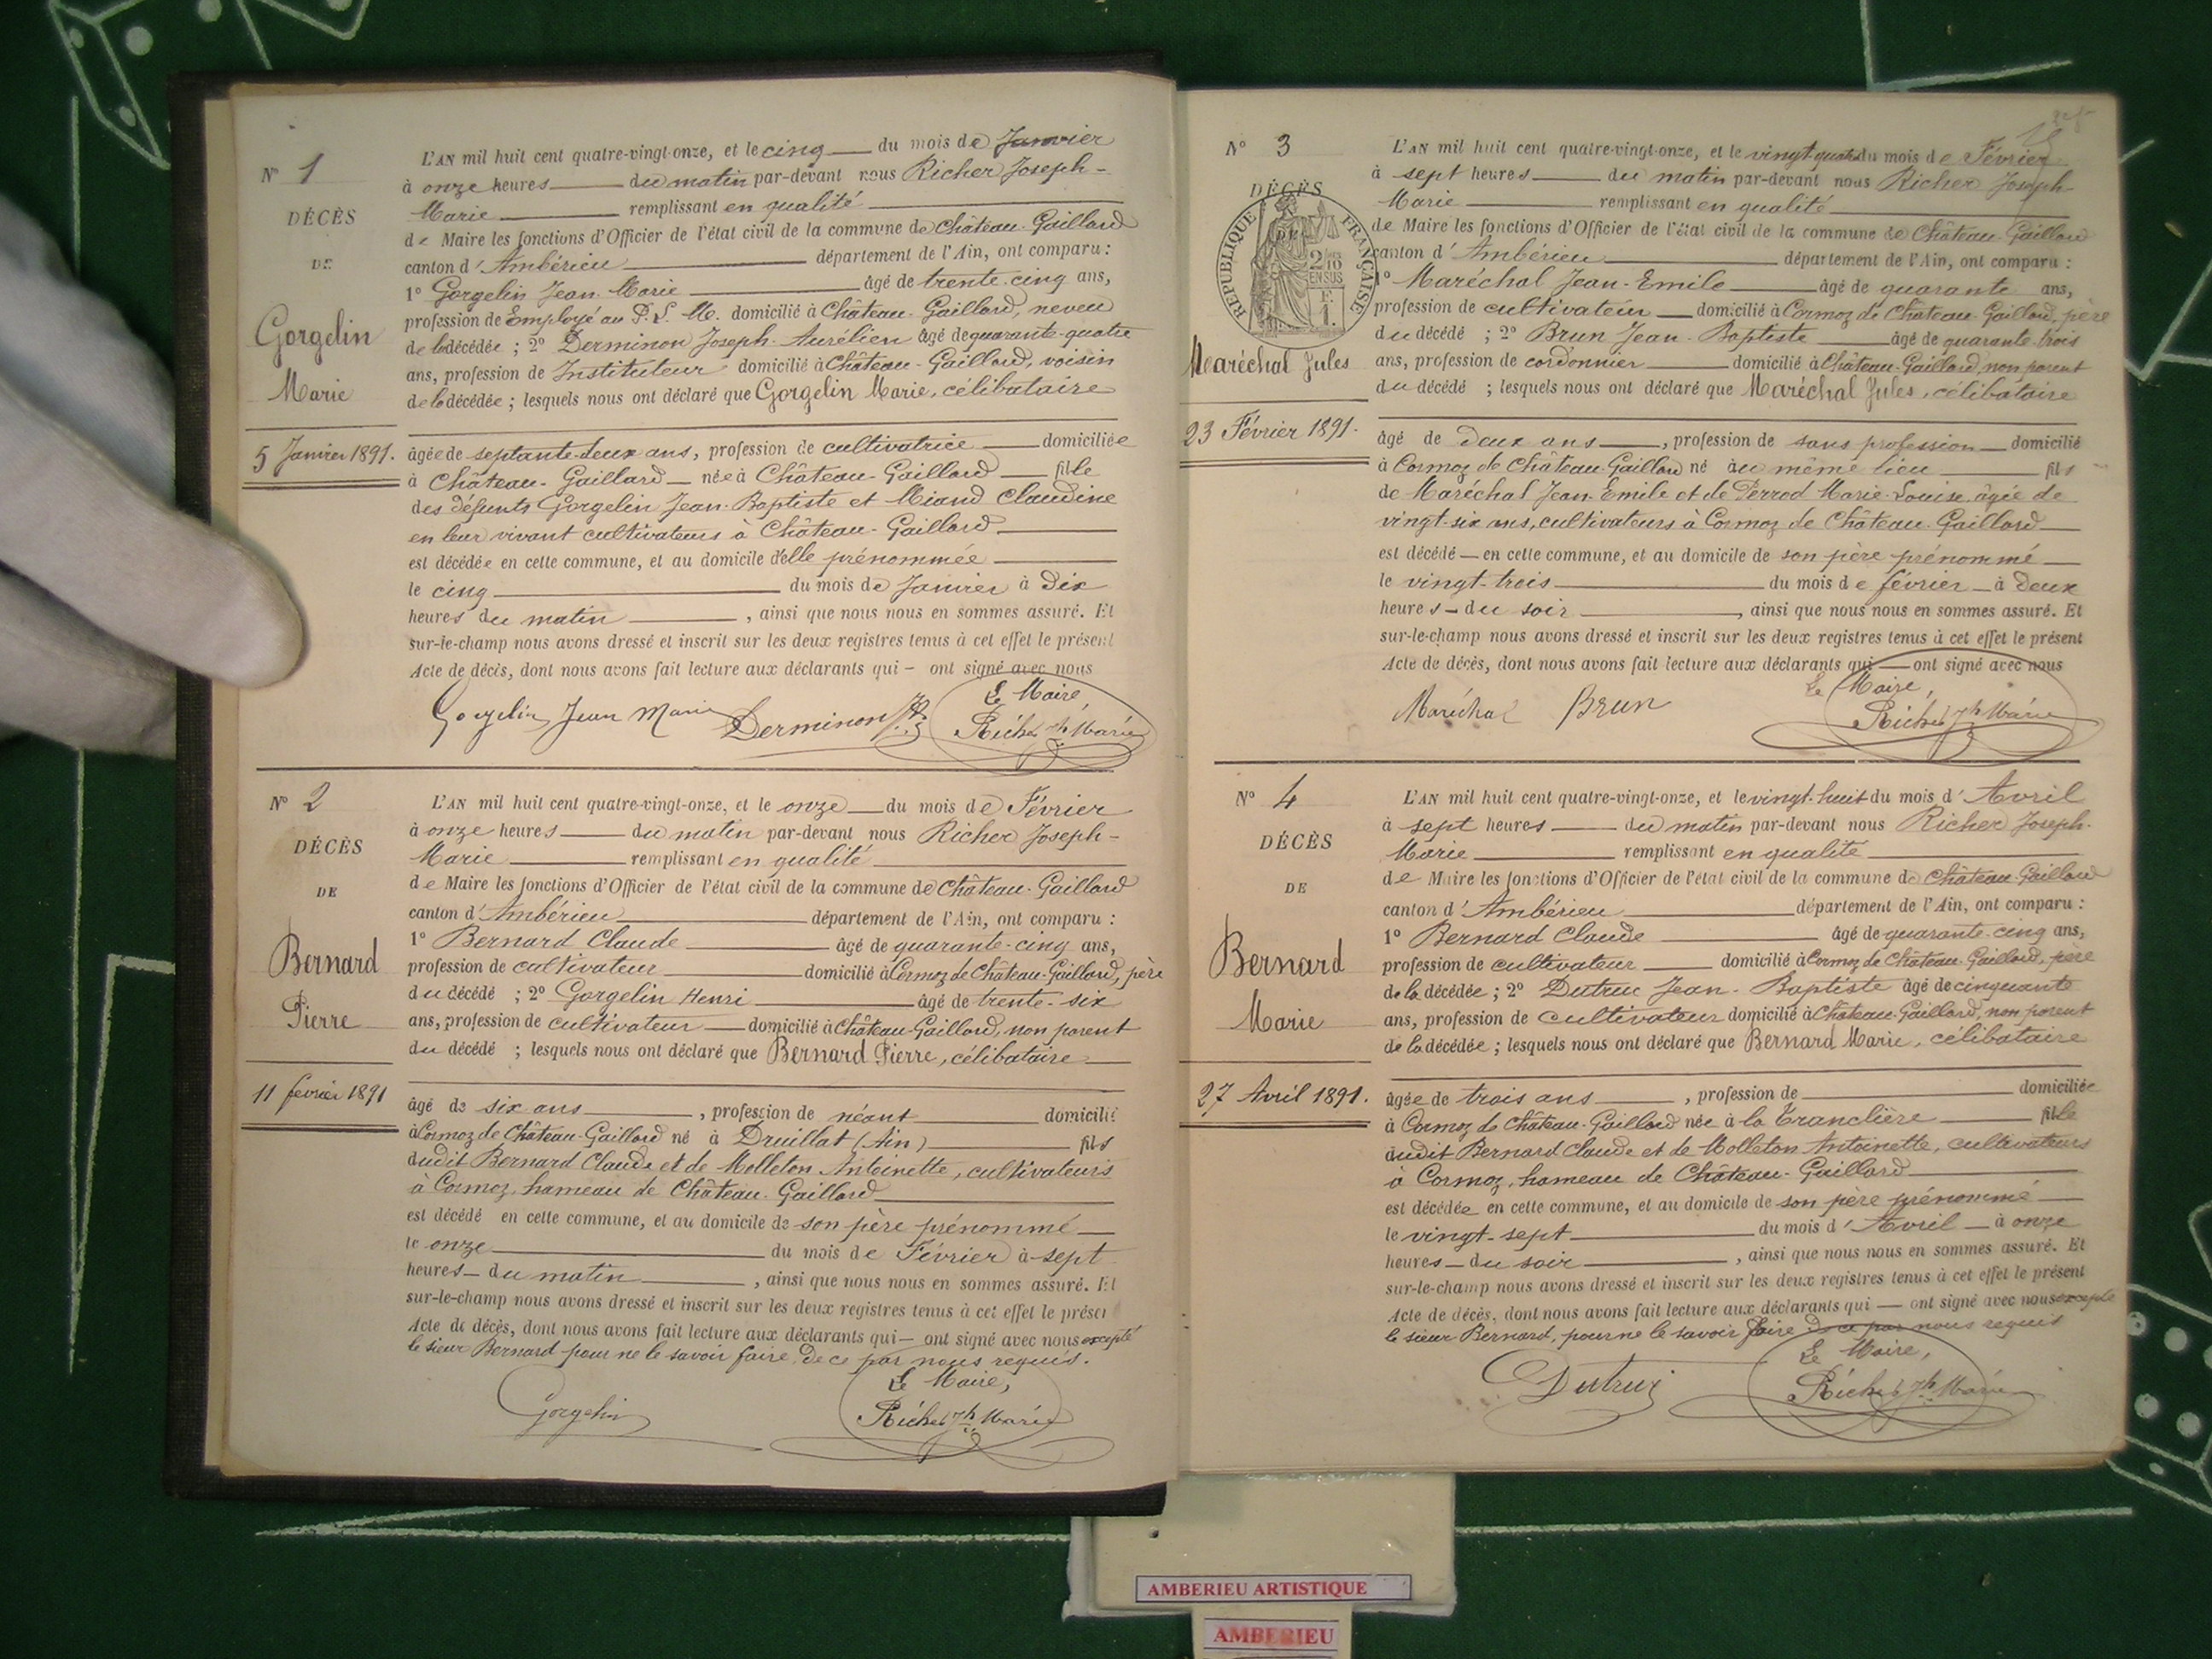 N° 1
DÉCÈS
DE
Gorgelin
Marie
5 Janvier 1891.
L'AN mil huit cent quatre-vingt-onze, et le cinq du mois de Janvier
à onze heures du matin par-devant nous Richer Joseph-
Marie remplissant en qualité
de Maire les fonctions d'Officier de l'état civil de la commune de Château-Gaillard
canton d'Ambérieu département de l'Ain, ont comparu :
1° Gorgelin Jean-Marie âgé de trente-cinq ans,
profession de Employé au P. L. M. domicilié à Château-Gaillard, neveu
de la décédée ; 2° Derminon Joseph-Aurélien âgé de quarante-quatre
ans, profession de Instituteur domicilié à Château-Gaillard, voisin
de la décédée ; lesquels nous ont déclaré que Gorgelin Marie, célibataire
âgée de septante-deux ans, profession de cultivatrice domiciliée
à Château-Gaillard née à Château-Gaillard fille
des défunts Gorgelin Jean-Baptiste et Miand Claudine
en leur vivant cultivateurs à Château-Gaillard
est décédée en cette commune, et au domicile d'elle prénommée
le cinq du mois de Janvier à dix
heures du matin, ainsi que nous nous en sommes assuré. Et
sur-le-champ nous avons dressé et inscrit sur les deux registres tenus à cet effet le présent
Acte de décès, dont nous avons fait lecture aux déclarants qui ont signé avec nous
Le Maire,
Gorgelin Jean Marie Derminon Richer Jh Marie
N° 2
DÉCÈS
DE
Bernard
Pierre
11 février 1891
L'AN mil huit cent quatre-vingt-onze, et le onze du mois de Février
à onze heures du matin par-devant nous Richer Joseph-
Marie remplissant en qualité
de Maire les fonctions d'Officier de l'état civil de la commune de Château-Gaillard
canton d'Ambérieu département de l'Ain, ont comparu :
1° Bernard Claude âgé de quarante-cinq ans,
profession de cultivateur domicilié à Cormoz de Château-Gaillard, père
du décédé ; 2° Gorgelin Henri âgé de trente-six
ans, profession de cultivateur domicilié à Château-Gaillard, non parent
du décédé ; lesquels nous ont déclaré que Bernard Pierre, célibataire
âgé de six ans, profession de néant domicilié
à Cormoz de Château-Gaillard né à Druillat (Ain) fils
dudit Bernard Claude et de Molleton Antoinette, cultivateurs
à Cormoz, hameau de Château-Gaillard
est décédé en cette commune, et au domicile de son père prénommé
le onze du mois de Février à sept
heures du matin, ainsi que nous nous en sommes assuré. Et
sur-le-champ nous avons dressé et inscrit sur les deux registres tenus à cet effet le présent
Acte de décès, dont nous avons fait lecture aux déclarants qui ont signé avec nous excepté
le sieur Bernard pour ne le savoir faire de ce par nous requis.
Le Maire,
Gorgelin Richer Jh Marie
N° 3
DÉCÈS
DE
RÉPUBLIQUE FRANÇAISE
2/10 EN SUS
Maréchal Jules
23 Février 1891.
L'AN mil huit cent quatre-vingt-onze, et le vingt quatre du mois de Février
à sept heures du matin par-devant nous Richer Joseph-
Marie remplissant en qualité
de Maire les fonctions d'Officier de l'état civil de la commune de Château-Gaillard
canton d'Ambérieu département de l'Ain, ont comparu :
1° Maréchal Jean-Emile âgé de quarante ans,
profession de cultivateur domicilié à Cormoz de Château-Gaillard, père
du décédé ; 2° Brun Jean-Baptiste âgé de quarante-trois
ans, profession de cordonnier domicilié à Château-Gaillard non parent
du décédé ; lesquels nous ont déclaré que Maréchal Jules, célibataire
âgé de deux ans, profession de sans profession domicilié
à Cormoz de Château-Gaillard né au même lieu fils
de Maréchal Jean-Emile et de Perrod Marie-Louise, âgée de
vingt-six ans, cultivateurs à Cormoz de Château-Gaillard
est décédé en cette commune, et au domicile de son père prénommé
le vingt-trois du mois de février à deux
heures du soir, ainsi que nous nous en sommes assuré. Et
sur-le-champ nous avons dressé et inscrit sur les deux registres tenus à cet effet le présent
Acte de décès, dont nous avons fait lecture aux déclarants qui ont signé avec nous
Le Maire,
Maréchal BRUN Richer Jh Marie
N° 4
DÉCÈS
DE
Bernard
Marie
27 Avril 1891.
L'AN mil huit cent quatre-vingt-onze, et le vingt-huit du mois d'Avril
à sept heures du matin par-devant nous Richer Joseph-
Marie remplissant en qualité
de Maire les fonctions d'Officier de l'état civil de la commune de Château-Gaillard
canton d'Ambérieu département de l'Ain, ont comparu :
1° Bernard Claude âgé de quarante-cinq ans,
profession de cultivateur domicilié à Cormoz de Château-Gaillard, père
de la décédée ; 2° Dutruc Jean-Baptiste âgé de cinquante
ans, profession de cultivateur domicilié à Château-Gaillard, non parent
de la décédée ; lesquels nous ont déclaré que Bernard Marie, célibataire
âgée de trois ans, profession de domiciliée
à Cormoz de Château-Gaillard née à la Tranclière fille
dudit Bernard Claude et de Molleton Antoinette, cultivateurs
à Cormoz, hameau de Château-Gaillard
est décédée en cette commune, et au domicile de son père prénommé
le vingt-sept du mois d'Avril à onze
heures du soir, ainsi que nous nous en sommes assuré. Et
sur-le-champ nous avons dressé et inscrit sur les deux registres tenus à cet effet le présent
Acte de décès, dont nous avons fait lecture aux déclarants qui ont signé avec nous excepté
le sieur Bernard, pour ne le savoir faire de ce par nous requis
Le Maire,
Dutruc Richer Jh Marie
AMBERIEU ARTISTIQUE
AMBERIEU